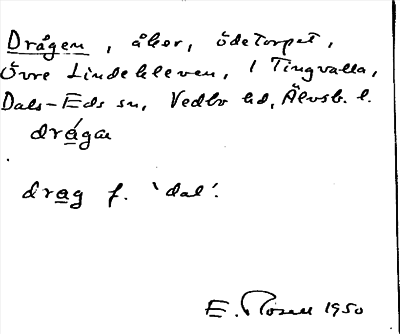 Drågen, åker, ödetorpet,
Övre Lindekleven, 1 Tingvalla,
Dals-Eds sn, Vedbo hd, Älvsb. l.
drágа
drag f. 'dal'.
E. Rosell 1950